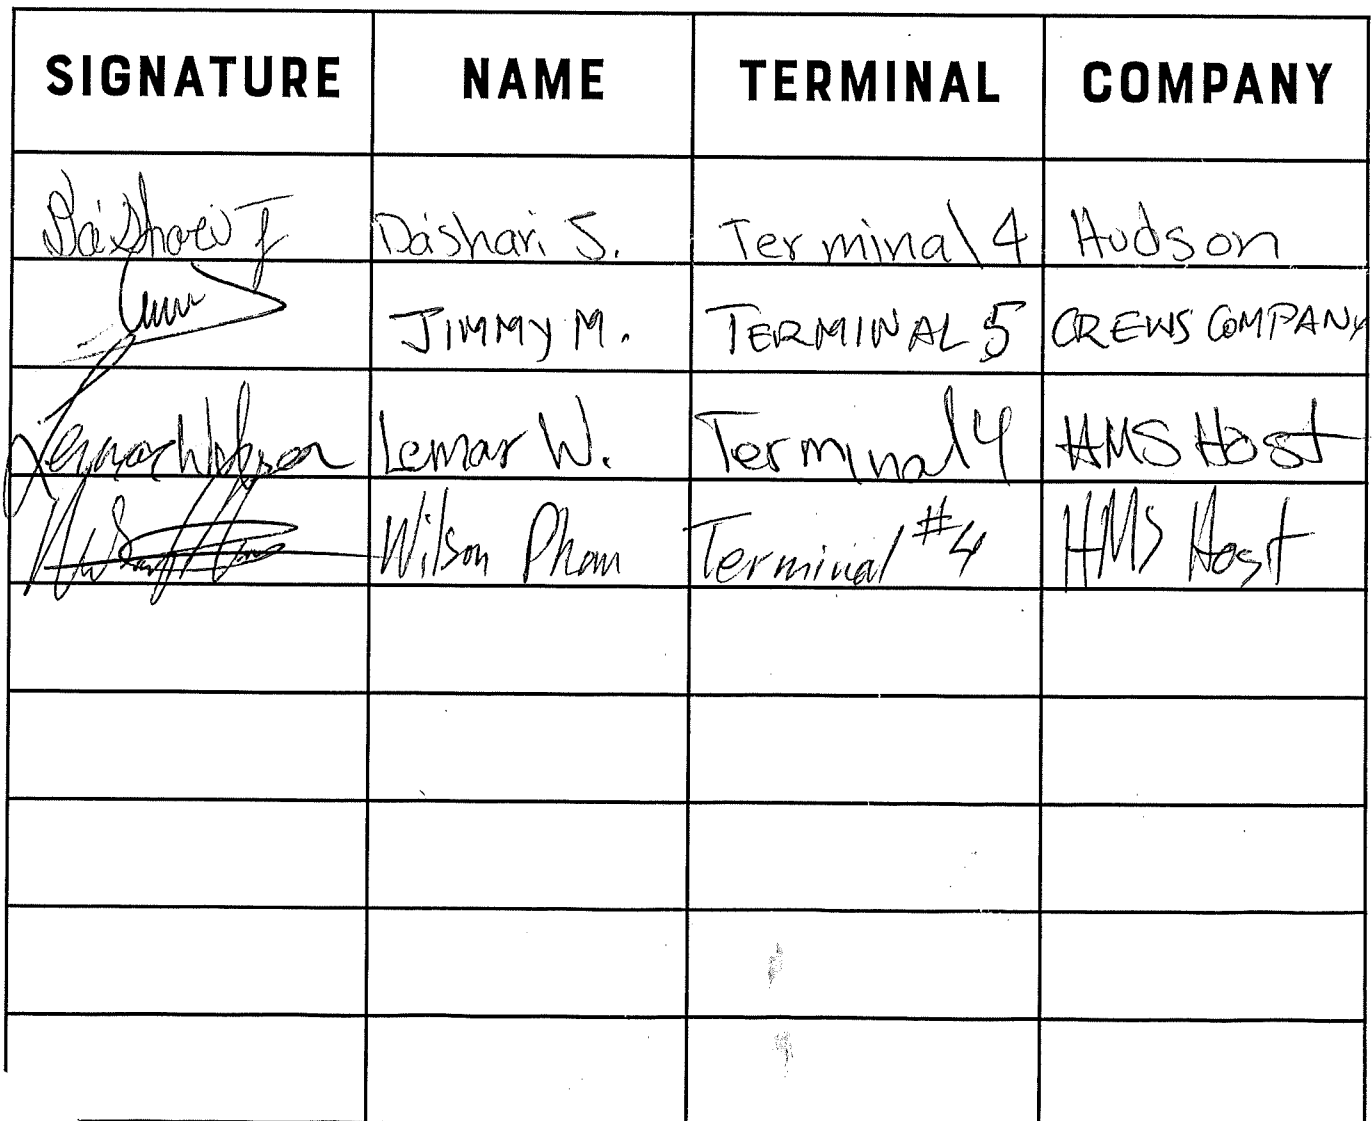 SIGNATURE NAME TERMINAL COMPANY
Dáshari S. Terminal 4 Hudson
JIMMY M. TERMINAL 5 CREWS COMPANY
Lemar W. Terminal 4 HMS Host
Wilson Pham Terminal #4 HMS Host